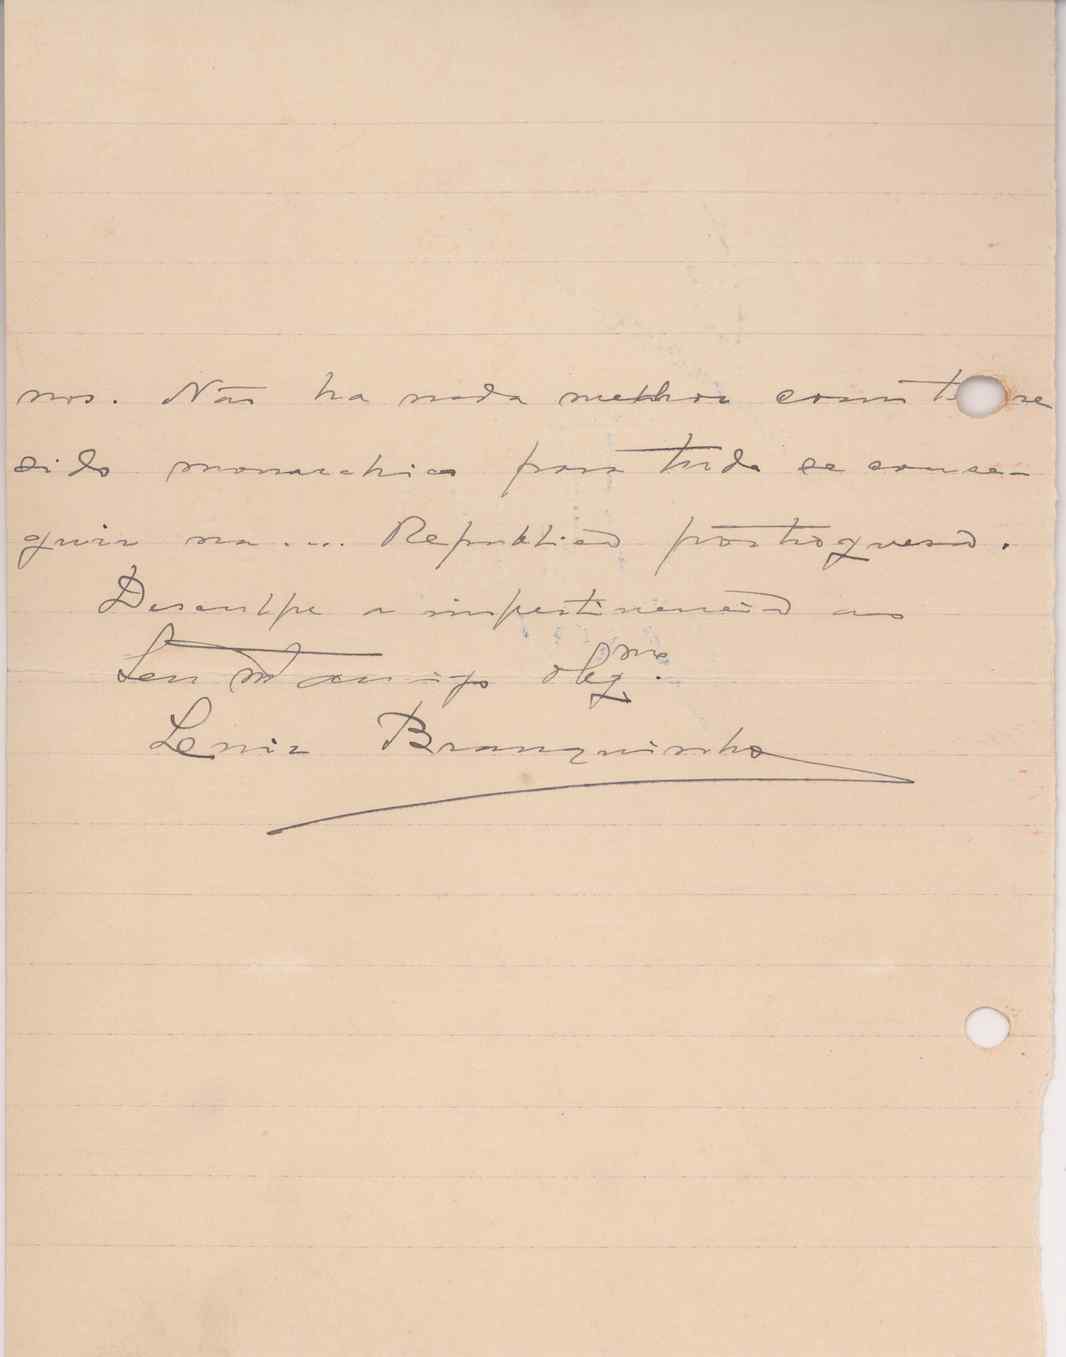 nos. Não ha nada melhor como t re
sido monarchico para tudo se conse-
guir na.... Republica portoguesa.
Desculpe a impertinencia ao
Seu mto amigo obgmo.
Luiz Branquinho